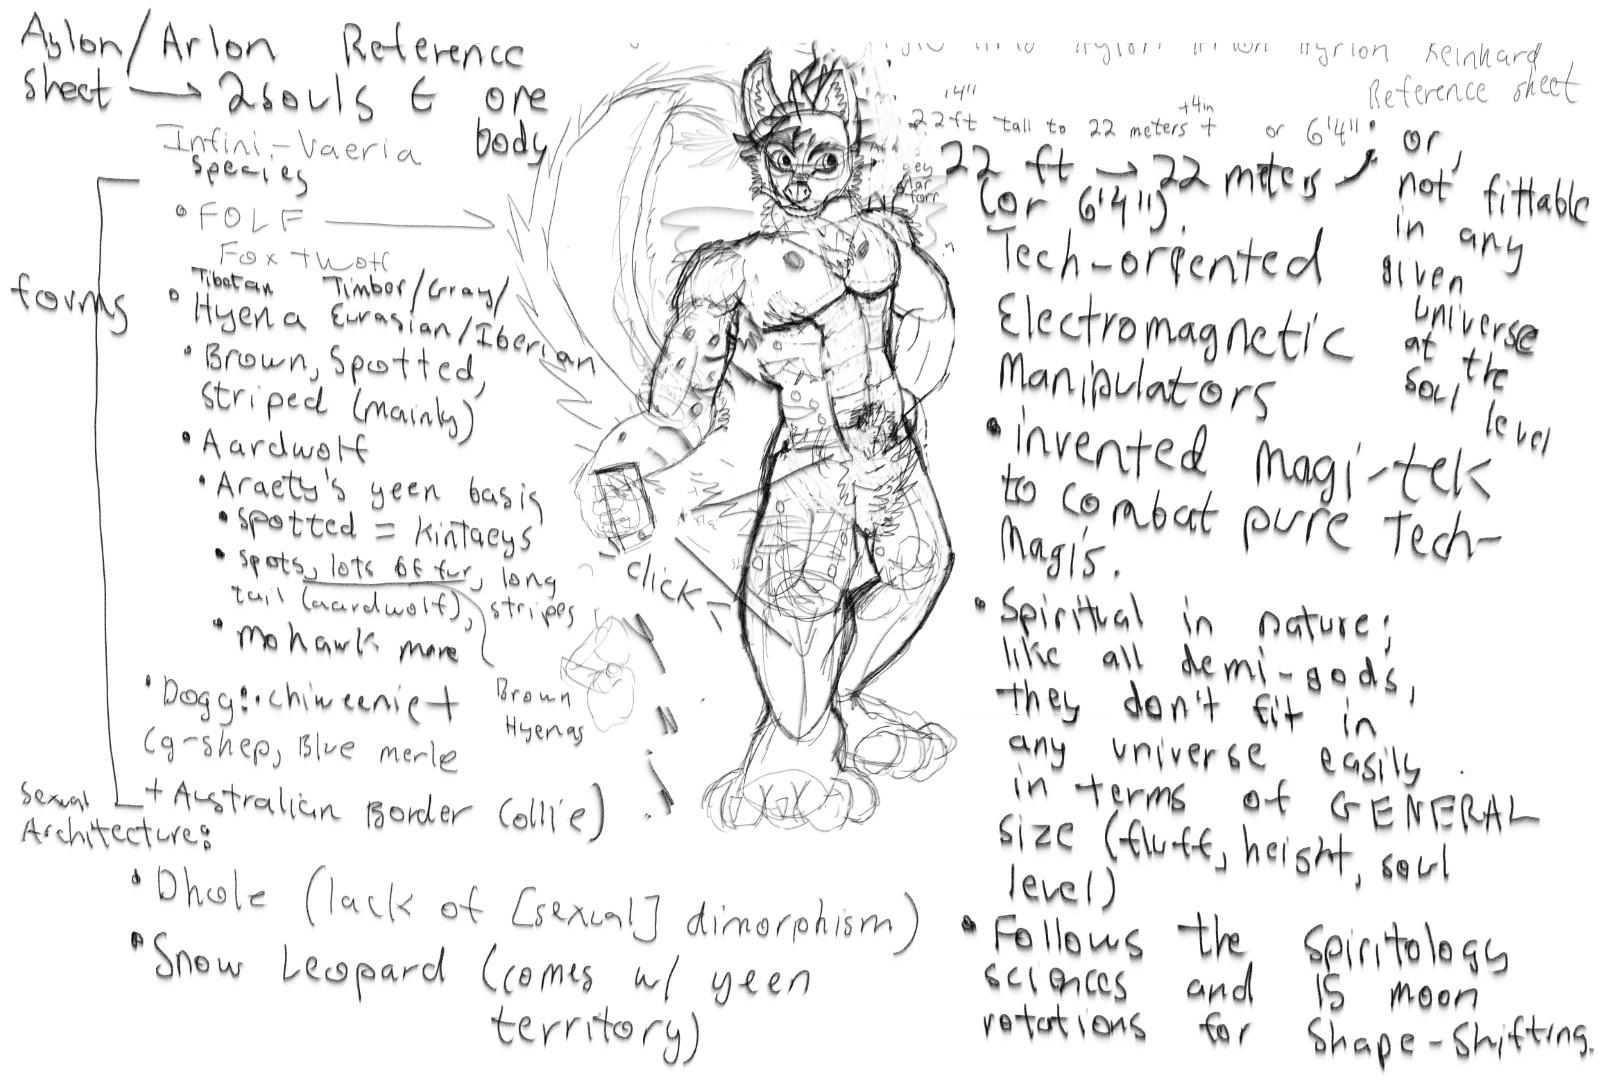 Aylon/Arlon Reference
sheet → 2 souls & one
body
Infini-Vaeria
species
forms
• FOLF →
Fox + Wolf
Tibetan Timber/Gray/
Eurasian/Iberian
• Hyena
• Brown, Spotted,
striped (mainly)
• Aardwolf
• Araety's yeen basis
• spotted = Kintaeys
• spots, lots of fur, long
tail (aardwolf), stripes
• mohawk mane
Brown
Hyenas
• Dogg: chiweenie +
(g-shep, Blue merle
+ Australian Border Collie)
Sexual
Architecture:
• Dhole (lack of [sexual] dimorphism)
• Snow Leopard (comes w/ yeen
territory)
click
Aylon Arlon Ayrlon Reinhard
Reference sheet
'4"
+4in
22ft tall to 22 meters + or 6'4"
22 ft → 22 meters
(or 6'4").
or,
not fittable
in any
given
universe
at the
soul
level
Tech-oriented
Electromagnetic
Manipulators
• invented magi-tek
to combat pure Tech-
Magis.
• Spiritual in nature;
like all demi-gods,
they don't fit in
any universe easily
in terms of GENERAL
size (fluff, height, soul
level)
• Follows the Spiritology
sciences and 15 moon
rotations for Shape-Shifting.